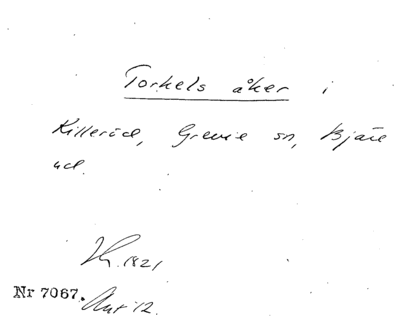 Torkels åker i
Killeröd, Grevie sn, Bjäre
hd.
Lh. 1821
Nr 7067. Akt 12.